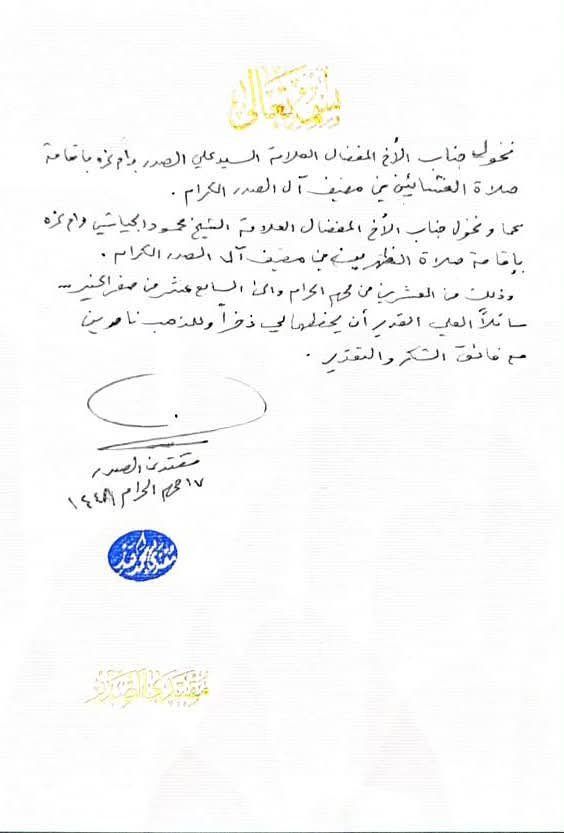 بسمه تعالى
نخول جناب الأخ المفضال العلامة السيد علي الصدر دام عزه بإقامة
صلاة العشائين في مضيف آل الصدر الكرام .
كما ونخول جناب الأخ المفضال العلامة الشيخ محمود الجياشي دام عزه
بإقامة صلاة الظهرين في مضيف آل الصدر الكرام .
وذلك من العشرين من محرم الحرام والى السابع عشر من صفر الخير ..
سائلاً العلي القدير أن يحفظهما لي ذخراً وللمذهب ناصرين
مع فائق الشكر والتقدير .
مقتدى الصدر
١٧ محرم الحرام ١٤٤٨
مقتدى الصدر